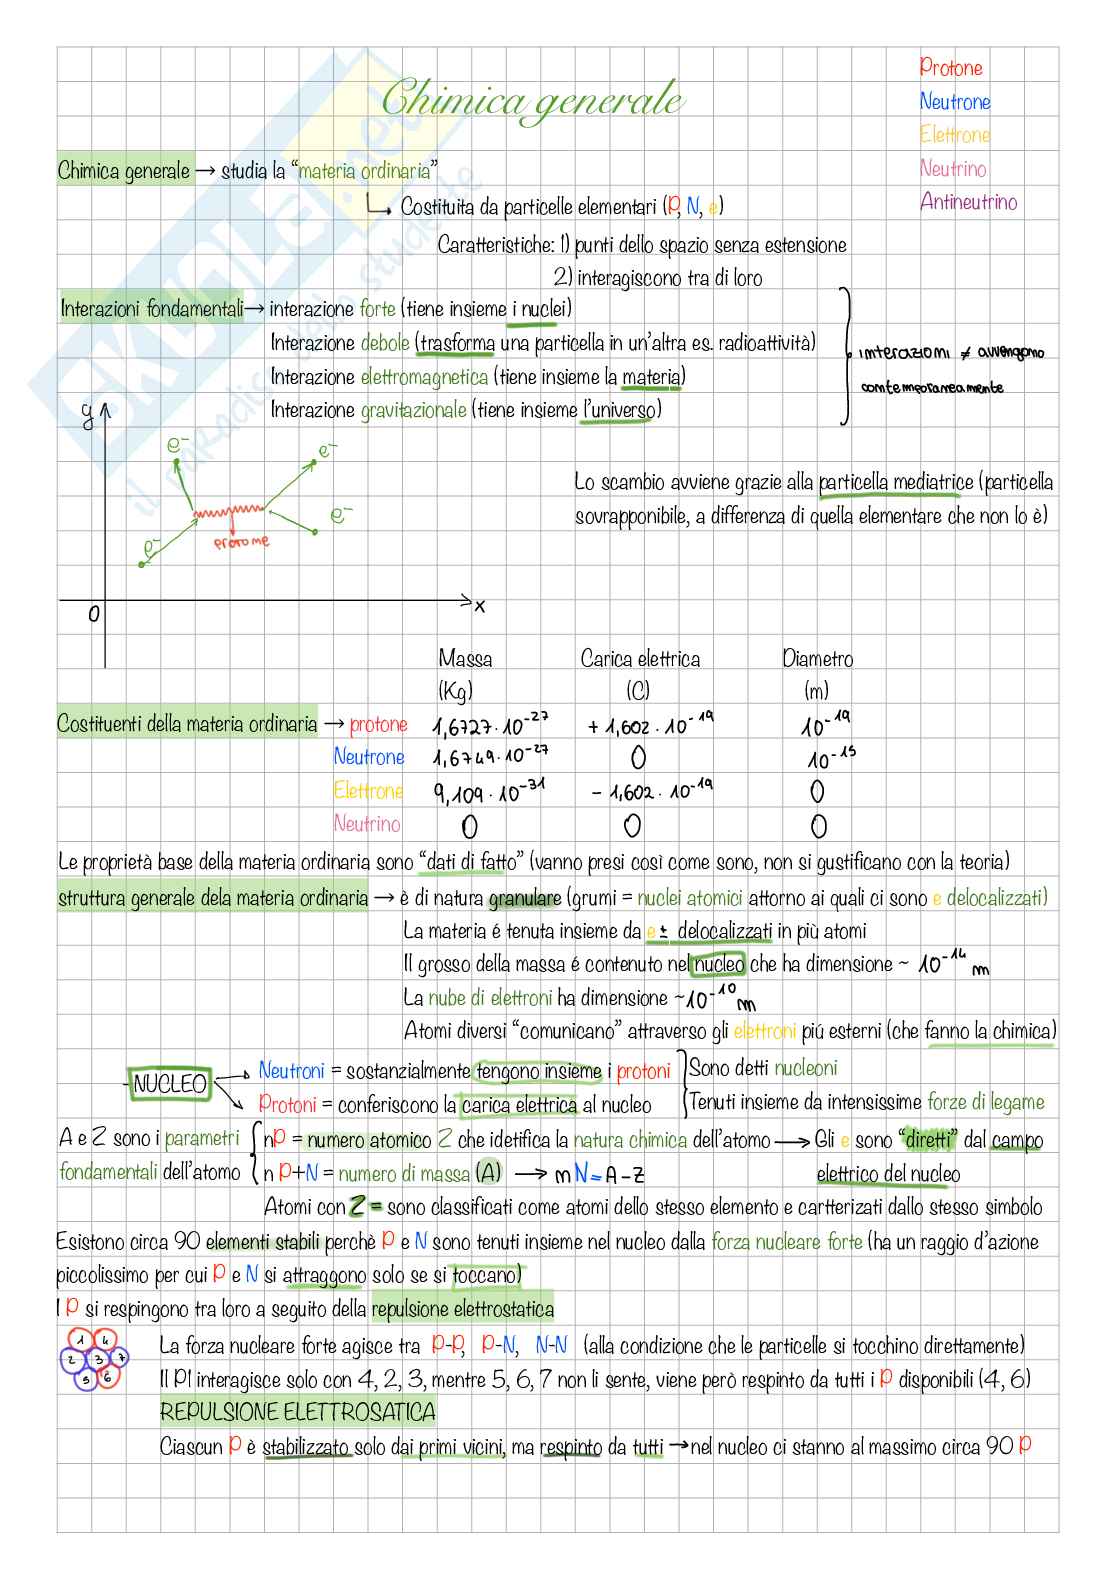 Chimica generale
Protone
Neutrone
Elettrone
Neutrino
Antineutrino
Chimica generale → studia la “materia ordinaria”
Costituita da particelle elementari (P, N, e)
Caratteristiche: 1) punti dello spazio senza estensione
2) interagiscono tra di loro
Interazioni fondamentali → interazione forte (tiene insieme i nuclei)
Interazione debole (trasforma una particella in un’altra es. radioattività)
Interazione elettromagnetica (tiene insieme la materia)
Interazione gravitazionale (tiene insieme l’universo)
interazioni ≠ avvengono
contemporaneamente
SKUOLA.net
il paradiso dello studente
y
e⁻
e⁻
e⁻
e⁻
protone
0
x
Lo scambio avviene grazie alla particella mediatrice (particella
sovrapponibile, a differenza di quella elementare che non lo è)
Massa Carica elettrica Diametro
(Kg) (C) (m)
Costituenti della materia ordinaria → protone 1,6727·10⁻²⁷ + 1,602·10⁻¹⁹ 10⁻¹⁹
Neutrone 1,6749·10⁻²⁷ 0 10⁻¹⁵
Elettrone 9,109·10⁻³¹ − 1,602·10⁻¹⁹ 0
Neutrino 0 0 0
Le proprietà base della materia ordinaria sono “dati di fatto” (vanno presi così come sono, non si gustificano con la teoria)
struttura generale dela materia ordinaria → è di natura granulare (grumi = nuclei atomici attorno ai quali ci sono e delocalizzati)
La materia é tenuta insieme da e ± delocalizzati in più atomi
Il grosso della massa é contenuto nel nucleo che ha dimensione ~ 10⁻¹⁴ m
La nube di elettroni ha dimensione ~10⁻¹⁰ m
Atomi diversi “comunicano” attraverso gli elettroni piú esterni (che fanno la chimica)
-NUCLEO
Neutroni = sostanzialmente tengono insieme i protoni
Protoni = conferiscono la carica elettrica al nucleo
Sono detti nucleoni
Tenuti insieme da intensissime forze di legame
A e Z sono i parametri
fondamentali dell’atomo
nP = numero atomico Z che idetifica la natura chimica dell’atomo → Gli e sono “diretti” dal campo
elettrico del nucleo
n P+N = numero di massa (A) → nN = A − Z
Atomi con Z = sono classificati come atomi dello stesso elemento e cartterizati dallo stesso simbolo
Esistono circa 90 elementi stabili perchè P e N sono tenuti insieme nel nucleo dalla forza nucleare forte (ha un raggio d’azione
piccolissimo per cui P e N si attraggono solo se si toccano)
I P si respingono tra loro a seguito della repulsione elettrostatica
1 4
2 3 7
5 6
La forza nucleare forte agisce tra P-P, P-N, N-N (alla condizione che le particelle si tocchino direttamente)
Il P1 interagisce solo con 4, 2, 3, mentre 5, 6, 7 non li sente, viene però respinto da tutti i P disponibili (4, 6)
REPULSIONE ELETTROSATICA
Ciascun P è stabilizzato solo dai primi vicini, ma respinto da tutti → nel nucleo ci stanno al massimo circa 90 P